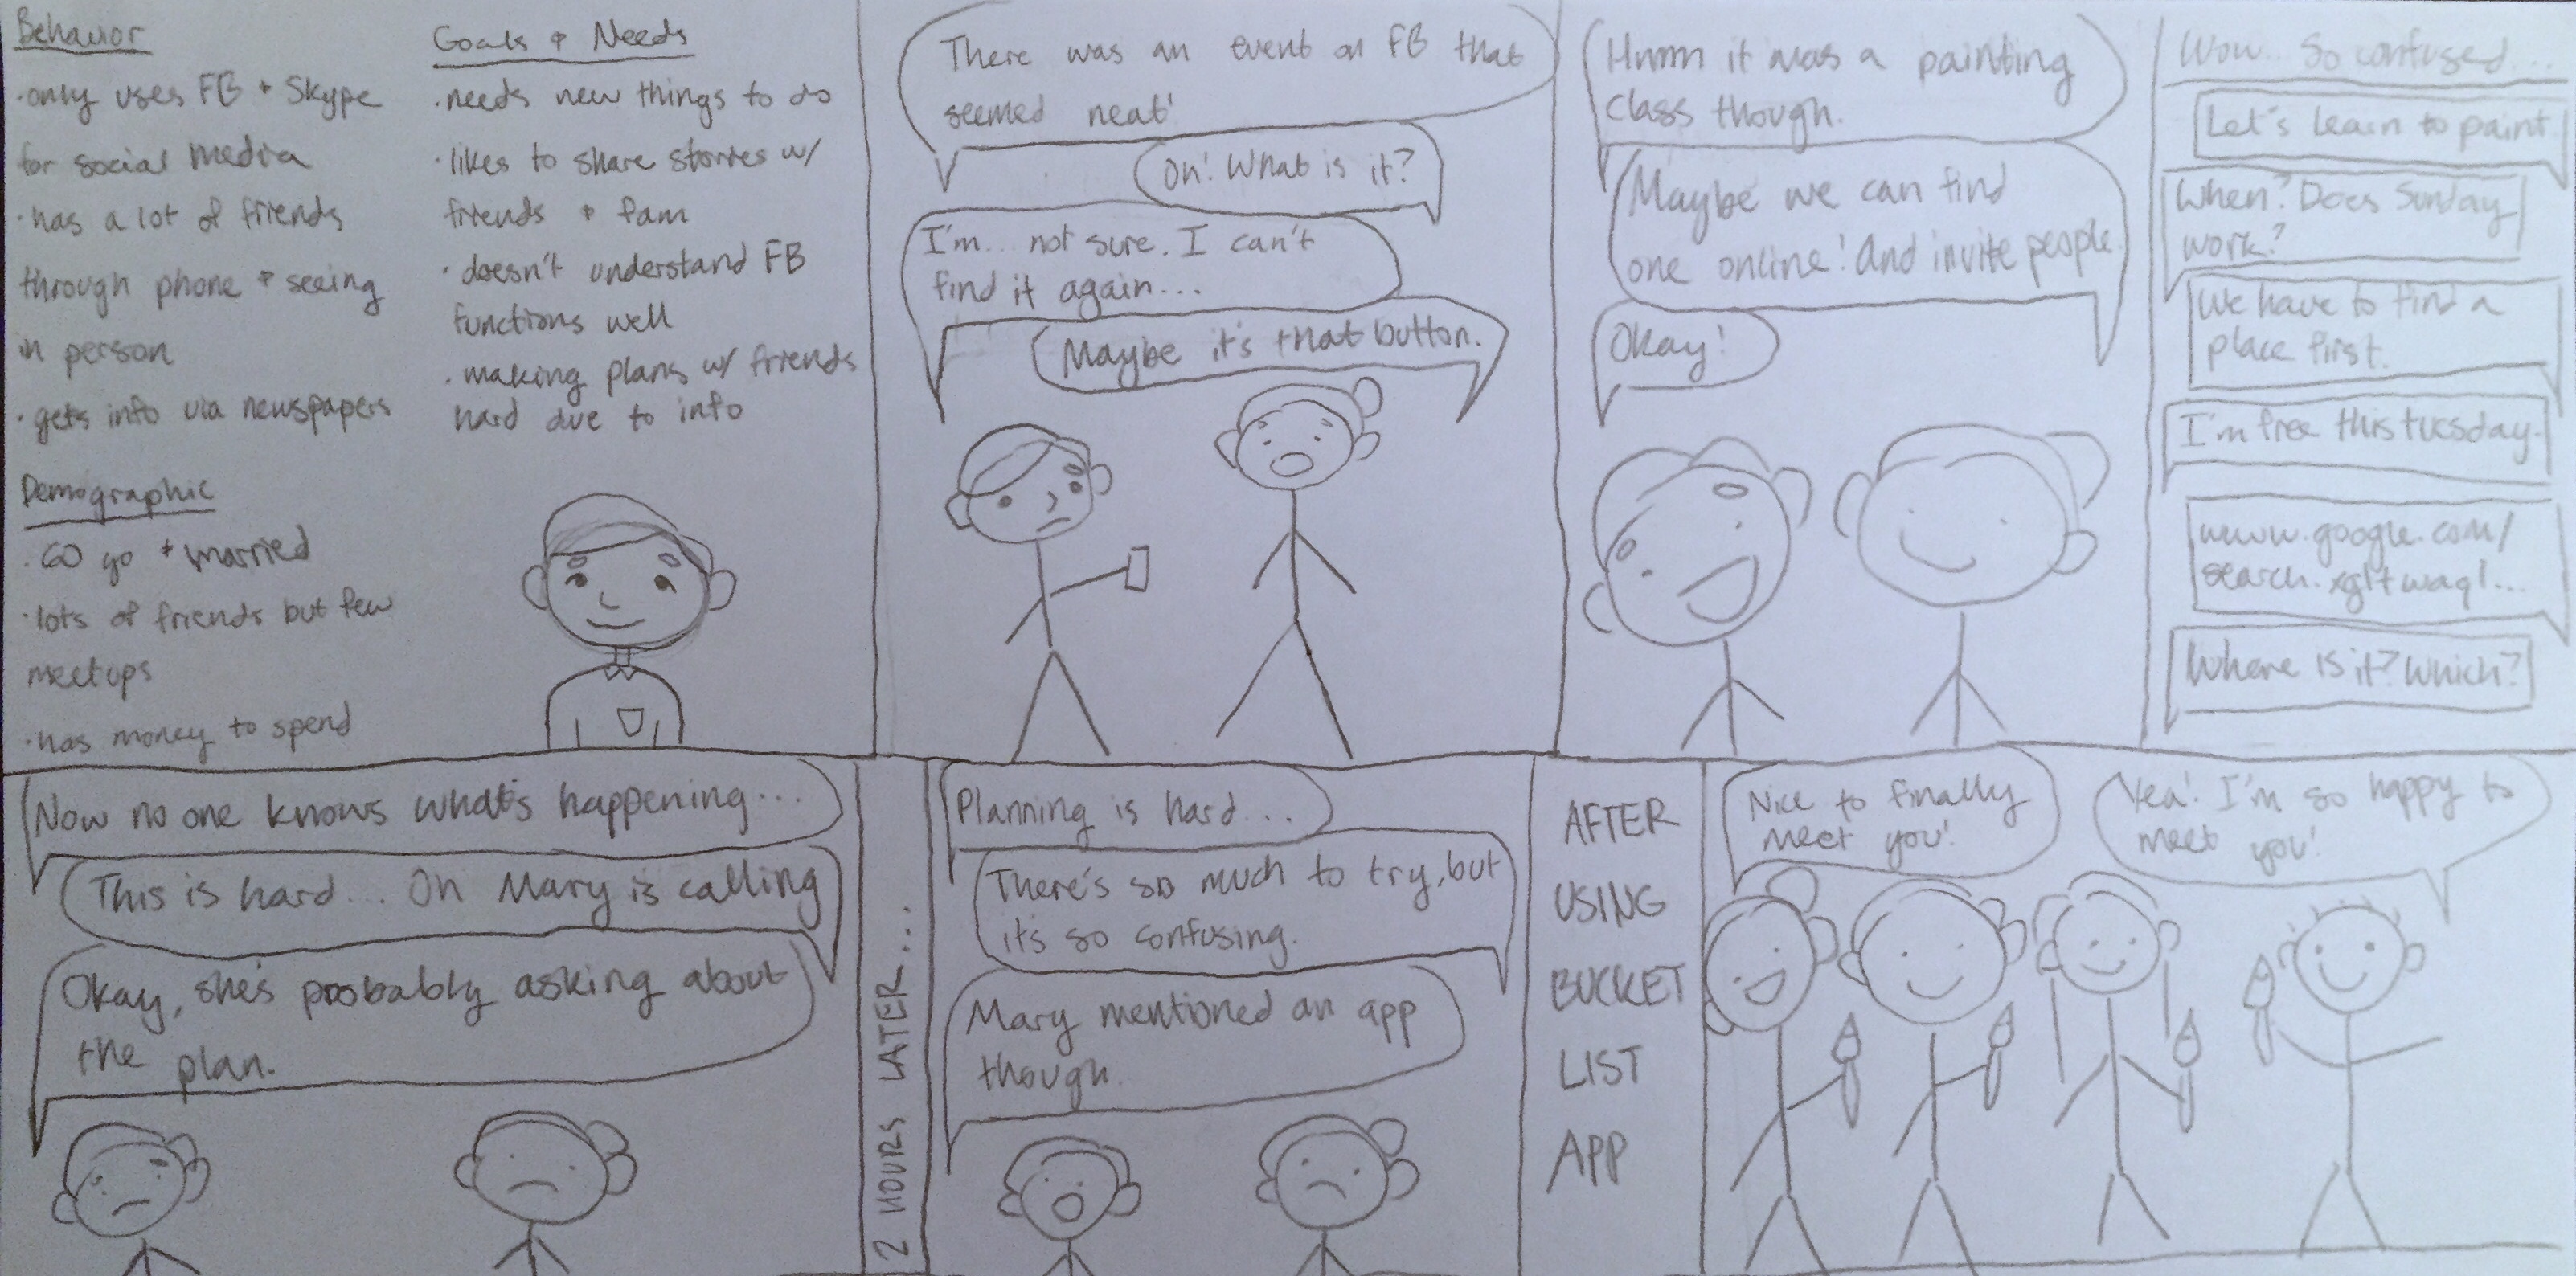 Behavior
·only uses FB + Skype
for social media
·has a lot of friends
through phone + seeing
in person
·gets info via newspapers
Demographic
·60 yo + married
·lots of friends but few
meetups
·has money to spend
Goals + Needs
·needs new things to do
·likes to share stories w/
friends + fam
·doesn't understand FB
functions well
·making plans w/ friends
hard due to info
There was an event on FB that
seemed neat!
Oh! What is it?
I'm... not sure. I can't
find it again...
Maybe it's that button.
Hmm it was a painting
class though.
Maybe we can find
one online! And invite people.
Okay!
Wow... So confused...
Let's learn to paint
When? Does Sunday
work?
We have to find a
place first.
I'm free this tuesday.
www.google.com/
search.xgltwaql...
Where is it? Which?
Now no one knows what's happening...
This is hard... Oh Mary is calling
Okay, she's probably asking about
the plan.
2 HOURS LATER...
Planning is hard...
There's so much to try, but
it's so confusing.
Mary mentioned an app
though.
AFTER
USING
BUCKET
LIST
APP
Nice to finally
meet you!
Yea! I'm so happy to
meet you!